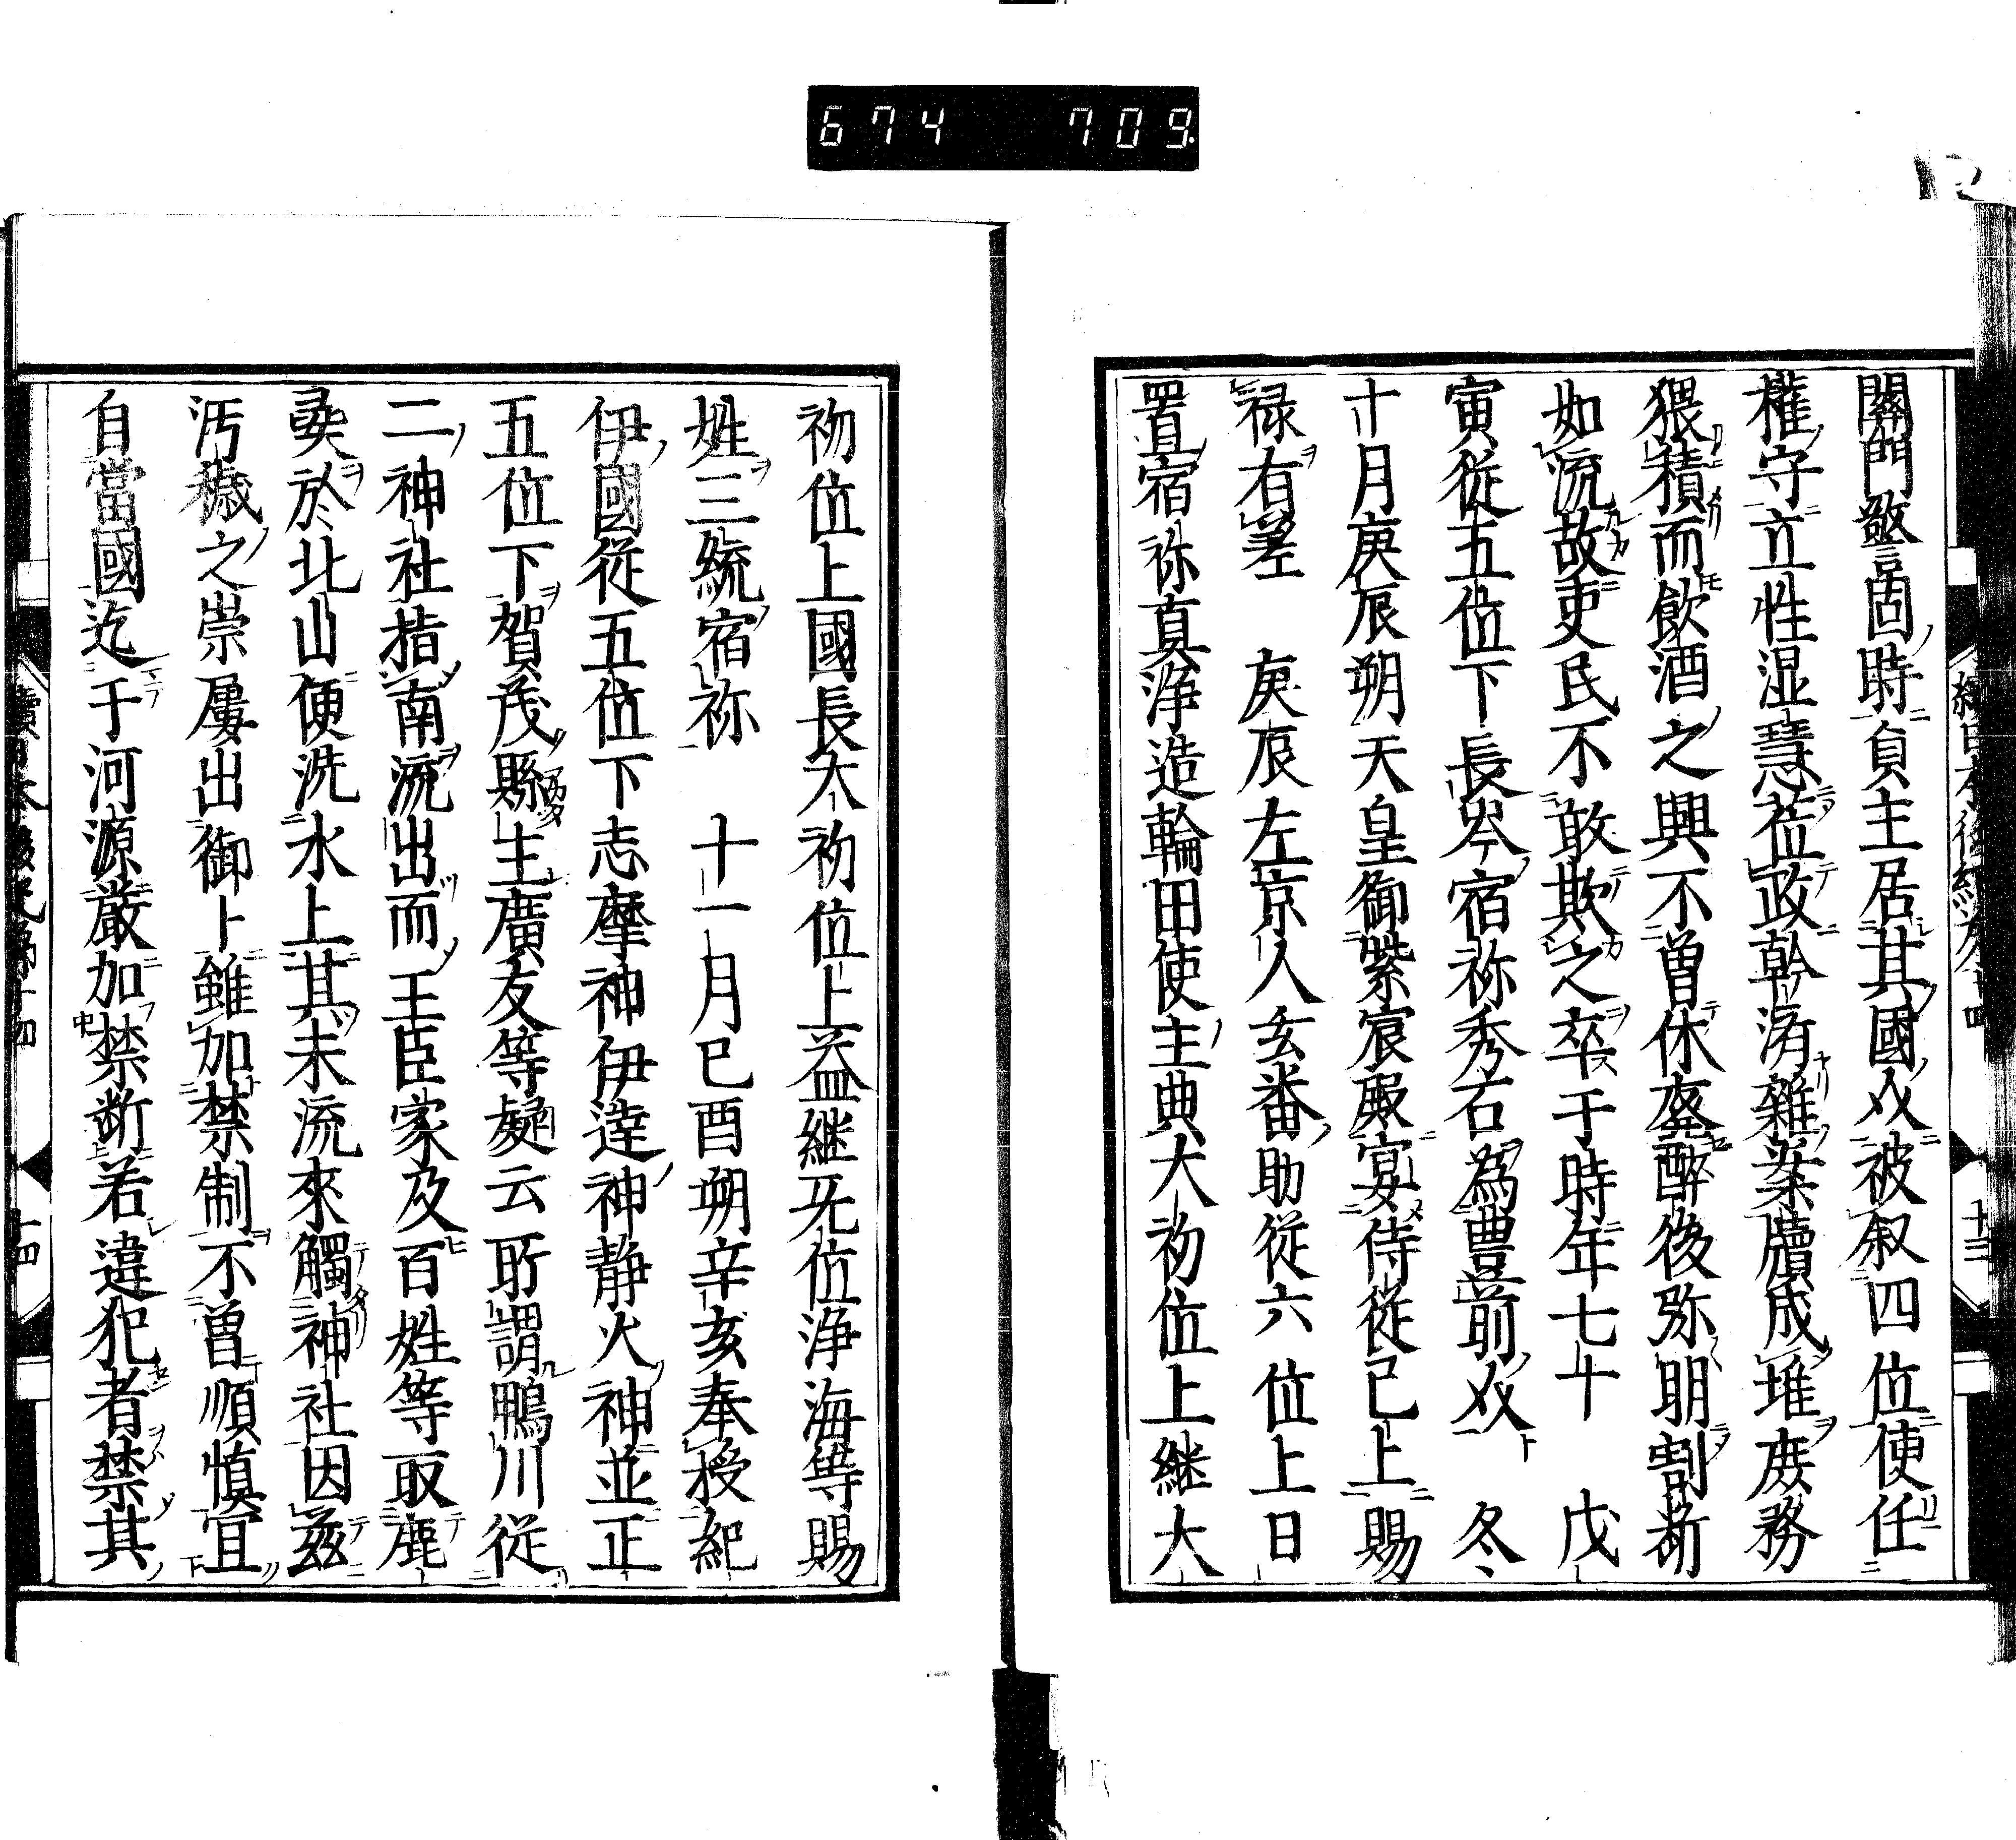 674 709
關門警固時貞主居其國㕝被叙四位使任
權守立性湿慧莅政幹済雜案牘成堆庶務
猥積而飲酒之興不曽休廢醉後弥明割断
如流故吏民不敢欺之卒于時年七十 戊
寅従五位下長岑宿祢秀石為豊前㕝 冬
十月庚辰朔天皇御紫宸殿宴侍従已上賜
禄有差 庚辰左京人玄番助従六位上日
置宿祢真浄造輪田使主典大初位上継大
初位上國長大初位上益継旡位浄海等賜
姓三統宿祢 十一月已酉朔辛亥奉授紀
伊國従五位下志摩神伊達神静火神並正
五位下賀茂縣主廣友等疑云所謂鴨川従
二神社指南流出而王臣家及百姓等取鹿
彘於北山便洗水上其末流來觸神社因茲
汚穢之崇屢出御卜雖加禁制不曽順慎宜
自當國迄于河源嚴加禁断若違犯者禁其